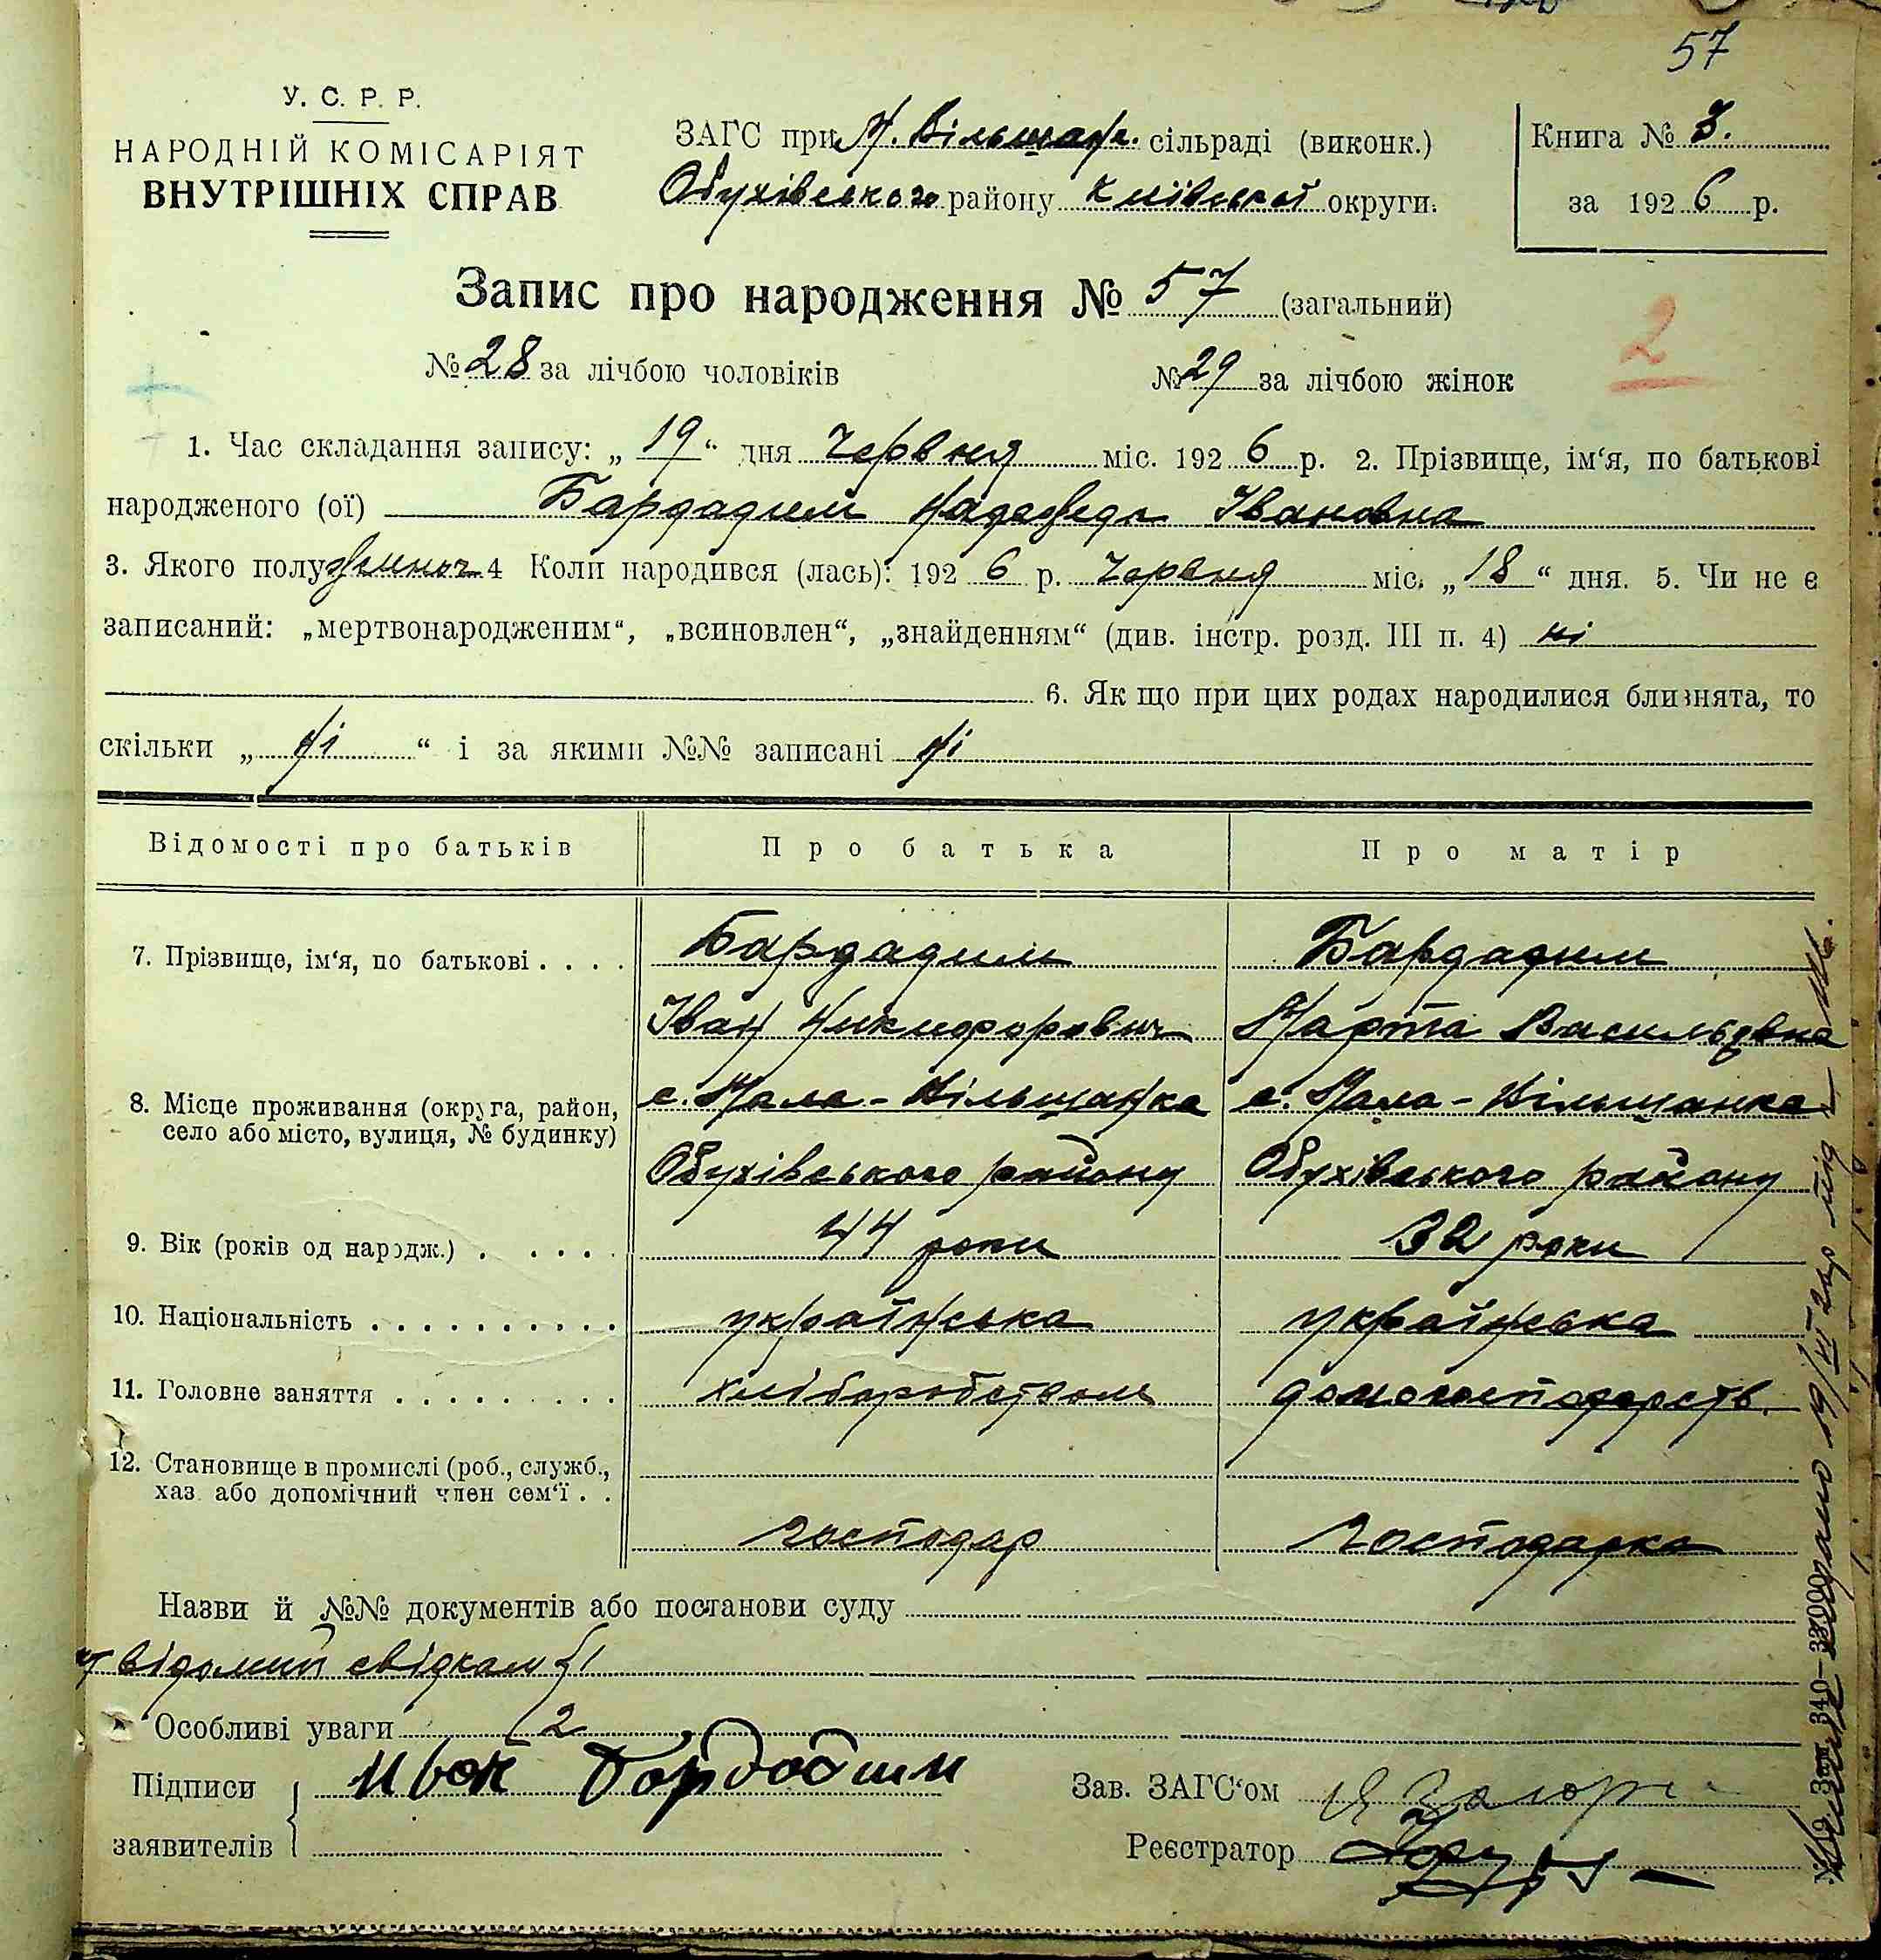 57
У. С. Р. Р.
НАРОДНІЙ КОМІСАРІЯТ
ВНУТРІШНІХ СПРАВ
ЗАГС при М. Вільшан. сільраді (виконк.)
Обухівського району Київської округи.
Книга № 3.
за 1926 р.
Запис про народження № 57 (загальний)
2
№ 28 за лічбою чоловіків № 29 за лічбою жінок
1. Час складання запису: „19“ дня Червня міс. 1926 р. 2. Прізвище, ім‘я, по батькові
народженого (ої) Бардадим Надежда Івановна
3. Якого полу жіноч. 4 Коли народився (лась): 1926 р. Червня міс. „18“ дня. 5. Чи не є
записаний: „мертвонародженим“, „всиновлен“, „знайденням“ (див. інстр. розд. III п. 4) ні
6. Як що при цих родах народилися близнята, то
скільки „ні“ і за якими №№ записані ні
Відомості про батьків Про батька Про матір
7. Прізвище, ім‘я, по батькові . . . . Бардадим Бардадим
Іван Никифорович Марта Васильовна
8. Місце проживання (округа, район, с. Мала-Вільшанка с. Мала-Вільшанка
село або місто, вулиця, № будинку)
Обухівського району Обухівського району
9. Вік (років од народж.) . . . . . 44 роки 32 роки
10. Національність . . . . . . . . . . українська українська
11. Головне заняття . . . . . . . . . хліборобством домогосподарств.
12. Становище в промислі (роб., служб.,
хаз. або допомічний член сем‘ї . .
господар господарка
Назви й №№ документів або постанови суду
відомий свідкам
Особливі уваги 2
Підписи Иван Бардадим Зав. ЗАГС‘ом
заявителів Реєстратор